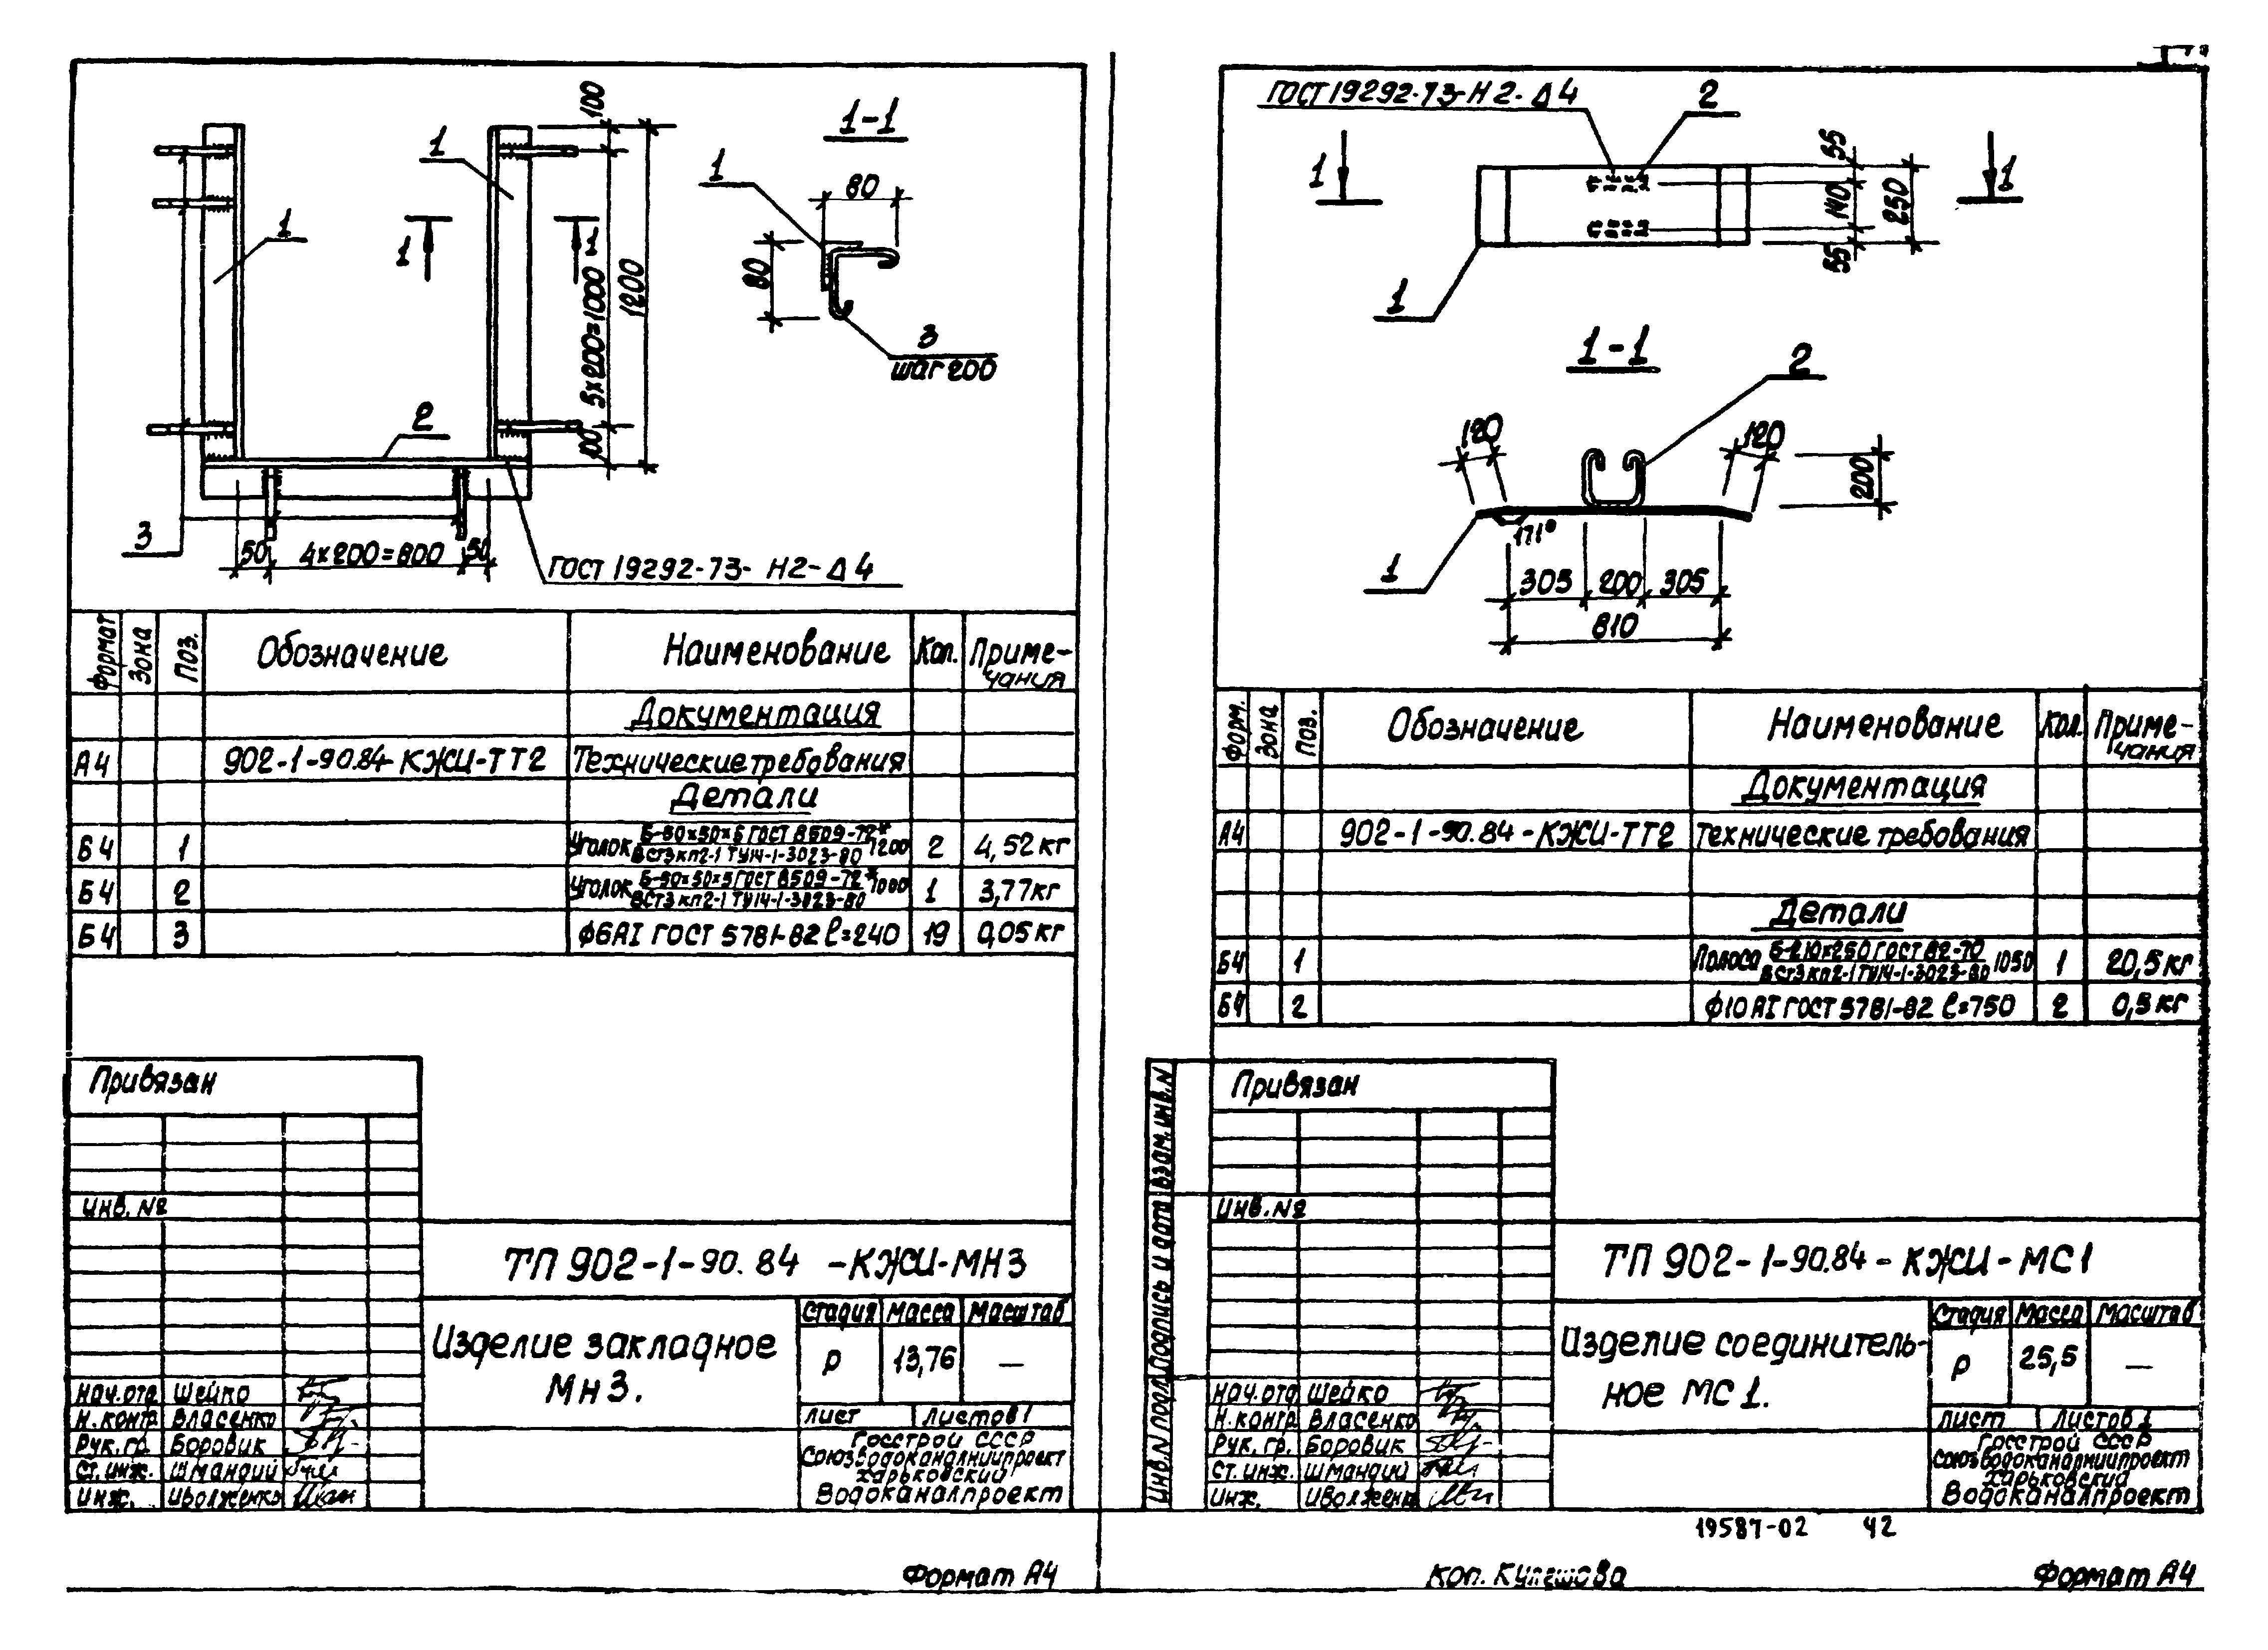 100
1-1
1
1
80
1
1
1
80
5×200=1000
1200
3
шаг 200
2
100
3
50
4×200=800
50
ГОСТ 19292-73- Н2-Δ4
Формат
Зона
Поз.
Обозначение
Наименование
Кол.
Приме-
чания
Документация
А4 902-1-90.84-КЖИ-ТТ2 Технические требования
Детали
Б4 1 Уголок Б-50×50×5 ГОСТ 8509-72* 1200 2 4,52 кг
ВСт3кп2-1 ТУ14-1-3023-80
Б4 2 Уголок Б-50×50×5 ГОСТ 8509-72* 1000 1 3,77 кг
ВСт3кп2-1 ТУ14-1-3023-80
Б4 3 ϕ6АI ГОСТ 5781-82 ℓ=240 19 0,05 кг
Привязан
Инв. №
ТП 902-1-90.84 -КЖИ-МН3
Изделие закладное
Мн3.
Стадия Масса Масштаб
Р 13,76 —
Лист Листов 1
Госстрой СССР
Союзводоканалниипроект
Харьковский
Водоканалпроект
Нач.отд. Шейко
Н.контр. Власенко
Рук.гр. Боровик
Ст.инж. Шмандий
Инж. Иволженко
Формат А4
ГОСТ 19292-73-Н2-Δ4
2
1
1
55
140
250
55
1
1-1
2
120
120
200
171°
1
305
200
305
810
Форм.
Зона
Поз.
Обозначение
Наименование
Кол.
Приме-
чания
Документация
А4 902-1-90.84-КЖИ-ТТ2 Технические требования
Детали
Б4 1 Полоса Б-2 10×250 ГОСТ 82-70 1050 1 20,5 кг
ВСт3кп2-1 ТУ14-1-3023-80
Б4 2 ϕ10АI ГОСТ 5781-82 ℓ=750 2 0,5 кг
Взам.инв.N
Подпись и дата
Инв.N подл.
Привязан
Инв. №
ТП 902-1-90.84-КЖИ-МС1
Изделие соединитель-
ное МС1.
Стадия Масса Масштаб
Р 25,5 —
Лист Листов 1
Госстрой СССР
Союзводоканалниипроект
Харьковский
Водоканалпроект
Нач.отд. Шейко
Н.контр. Власенко
Рук.гр. Боровик
Ст.инж. Шмандий
Инж. Иволженко
19587-02 42
Коп. Кулешова
Формат А4